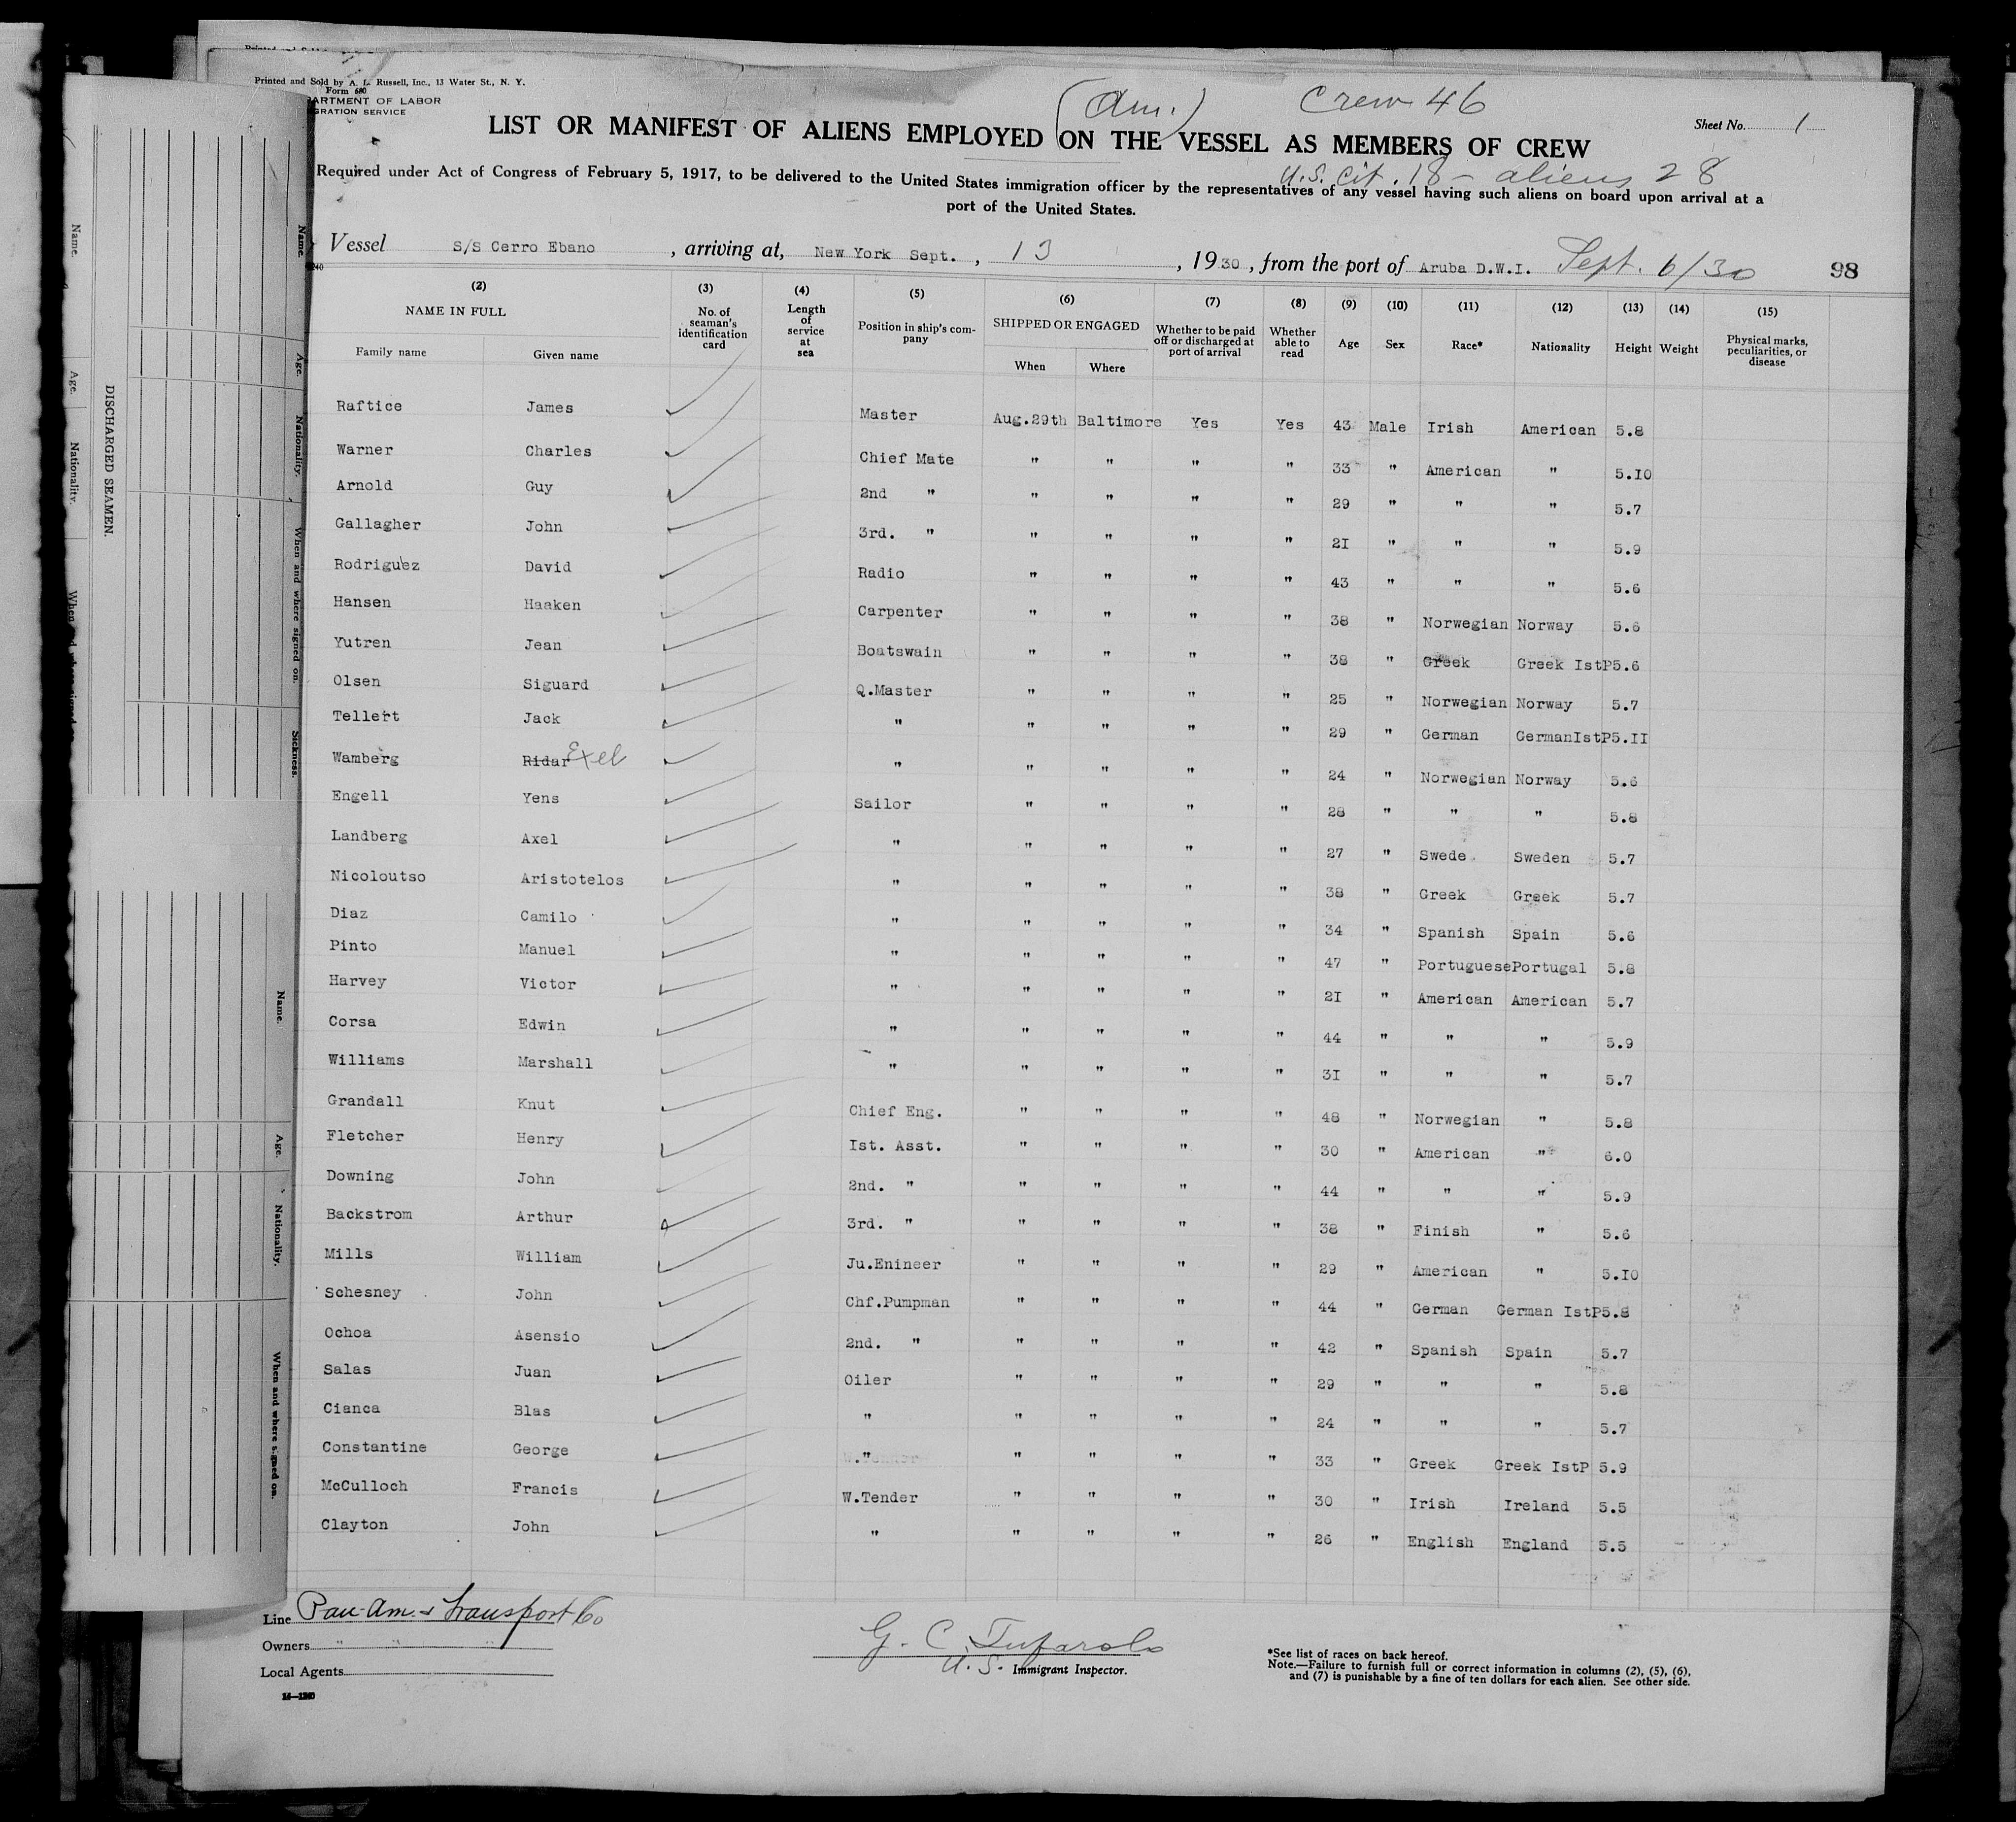 Printed and Sold by A. L. Russell, Inc., 13 Water St., N. Y.
Form 680
ARTMENT OF LABOR
GRATION SERVICE
(Am.) Crew 46
Sheet No. 1
LIST OR MANIFEST OF ALIENS EMPLOYED ON THE VESSEL AS MEMBERS OF CREW
U.S. Cit. 18 – aliens 28
Required under Act of Congress of February 5, 1917, to be delivered to the United States immigration officer by the representatives of any vessel having such aliens on board upon arrival at a
port of the United States.
Vessel S/S Cerro Ebano, arriving at, New York Sept., 13, 1930, from the port of Aruba D.W.I. Sept. 6/30 98
(2) (3) (4) (5) (6) (7) (8) (9) (10) (11) (12) (13) (14) (15)
NAME IN FULL No. of seaman's identification card Length of service at sea Position in ship's company SHIPPED OR ENGAGED Whether to be paid off or discharged at port of arrival Whether able to read Age Sex Race* Nationality Height Weight Physical marks, peculiarities, or disease
Family name Given name When Where
Raftice James Master Aug.29th Baltimore Yes Yes 43 Male Irish American 5.8
Warner Charles Chief Mate " " " " 33 " American " 5.I0
Arnold Guy 2nd " " " " " 29 " " " 5.7
Gallagher John 3rd. " " " " " 2I " " " 5.9
Rodriguez David Radio " " " " 43 " " " 5.6
Hansen Haaken Carpenter " " " " 38 " Norwegian Norway 5.6
Yutren Jean Boatswain " " " " 38 " Greek Greek IstP5.6
Olsen Siguard Q.Master " " " " 25 " Norwegian Norway 5.7
Tellert Jack " " " " " 29 " German GermanIstP5.II
Wamberg Ridar Exel " " " " " 24 " Norwegian Norway 5.6
Engell Yens Sailor " " " " 28 " " " 5.8
Landberg Axel " " " " " 27 " Swede Sweden 5.7
Nicoloutso Aristotelos " " " " " 38 " Greek Greek 5.7
Diaz Camilo " " " " " 34 " Spanish Spain 5.6
Pinto Manuel " " " " " 47 " Portuguese Portugal 5.8
Harvey Victor " " " " " 2I " American American 5.7
Corsa Edwin " " " " " 44 " " " 5.9
Williams Marshall " " " " " 3I " " " 5.7
Grandall Knut Chief Eng. " " " " 48 " Norwegian " 5.8
Fletcher Henry Ist. Asst. " " " " 30 " American " 6.0
Downing John 2nd. " " " " " 44 " " " 5.9
Backstrom Arthur 3rd. " " " " " 38 " Finish " 5.6
Mills William Ju.Enineer " " " " 29 " American " 5.I0
Schesney John Chf.Pumpman " " " " 44 " German German IstP5.8
Ochoa Asensio 2nd. " " " " " 42 " Spanish Spain 5.7
Salas Juan Oiler " " " " 29 " " " 5.8
Cianca Blas " " " " " 24 " " " 5.7
Constantine George " " " " " 33 " Greek Greek IstP 5.9
McCulloch Francis W.Tender " " " " 30 " Irish Ireland 5.5
Clayton John " " " " " 26 " English England 5.5
Line Pan-Am. & Transport Co
Owners " " "
Local Agents
G. C. Tufarolo
U.S. Immigrant Inspector.
*See list of races on back hereof.
Note.—Failure to furnish full or correct information in columns (2), (5), (6),
and (7) is punishable by a fine of ten dollars for each alien. See other side.
14—1240
DISCHARGED SEAMEN.
Name.
Age.
Nationality.
When and where signed on.
Sickness.
Name.
Age.
Nationality.
When and where signed on.
Name.
Age.
Nationality.
When and where signed on.